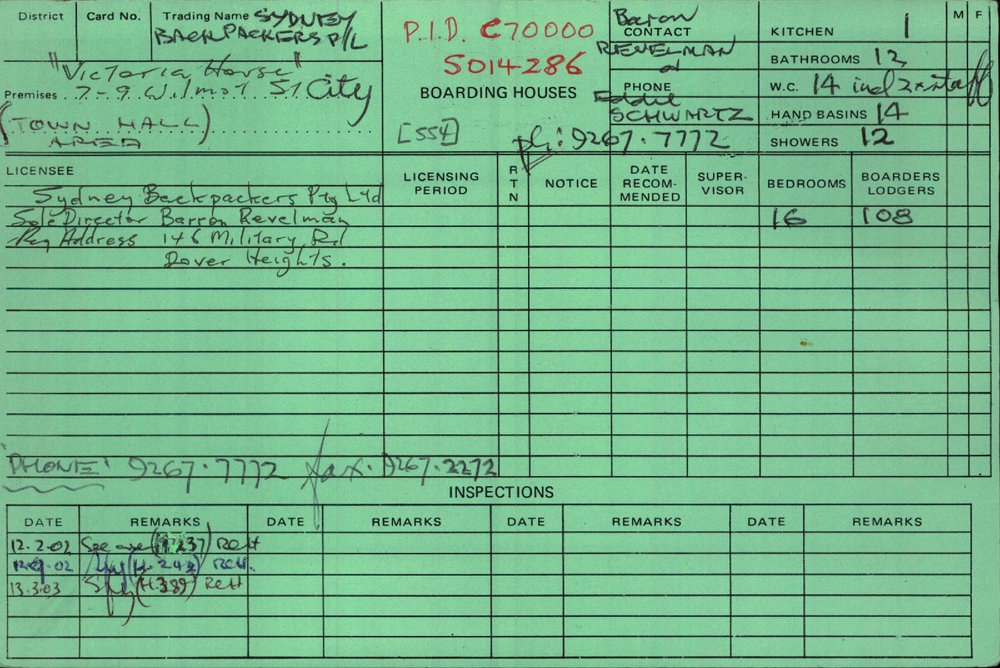 District Card No. Trading Name SYDNEY
BACKPACKERS P/L
"Victoria House"
Premises 7-9 Wilmot St City
(TOWN HALL
AREA)
P.I.D. C70000
5014286
BOARDING HOUSES
[554]
Baron
CONTACT
REVELMAN
or
PHONE
Eddie
SCHWARTZ
ph: 9267.7772
M F
KITCHEN 1
BATHROOMS 12
W.C. 14 incl 2 x staff
HAND BASINS 14
SHOWERS 12
LICENSEE
LICENSING PERIOD
RTN
NOTICE
DATE RECOM-MENDED
SUPER-VISOR
BEDROOMS
BOARDERS LODGERS
Sydney Backpackers Pty Ltd
Sole Director Barron Revelman 16 108
Reg Address 146 Military Rd
Dover Heights.
'PHONE' 9267.7772 fax. 9267.2272
INSPECTIONS
DATE REMARKS DATE REMARKS DATE REMARKS DATE REMARKS
12.2.02 See
02
13.3.03 (H.389)